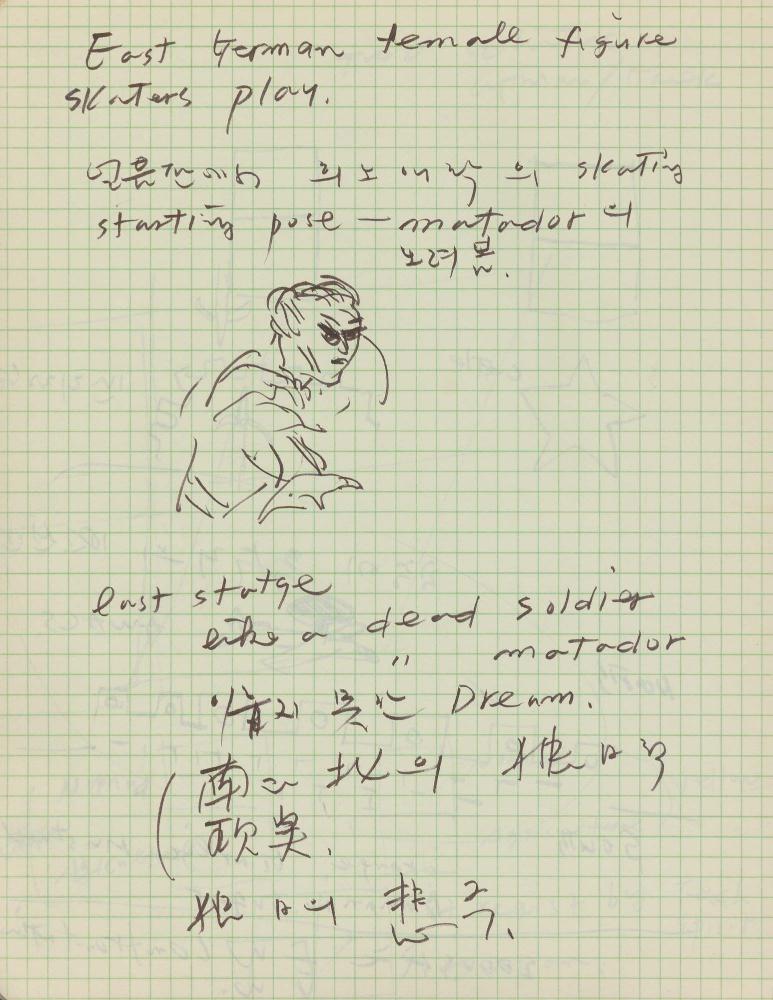 East German female figure
skaters play.
얼음판에서 의 skating
starting pose — matador의
노려봄.
last statge
like a dead soldier
" matador
못한 Dream.
南과 北의
現実.
의 悲극.